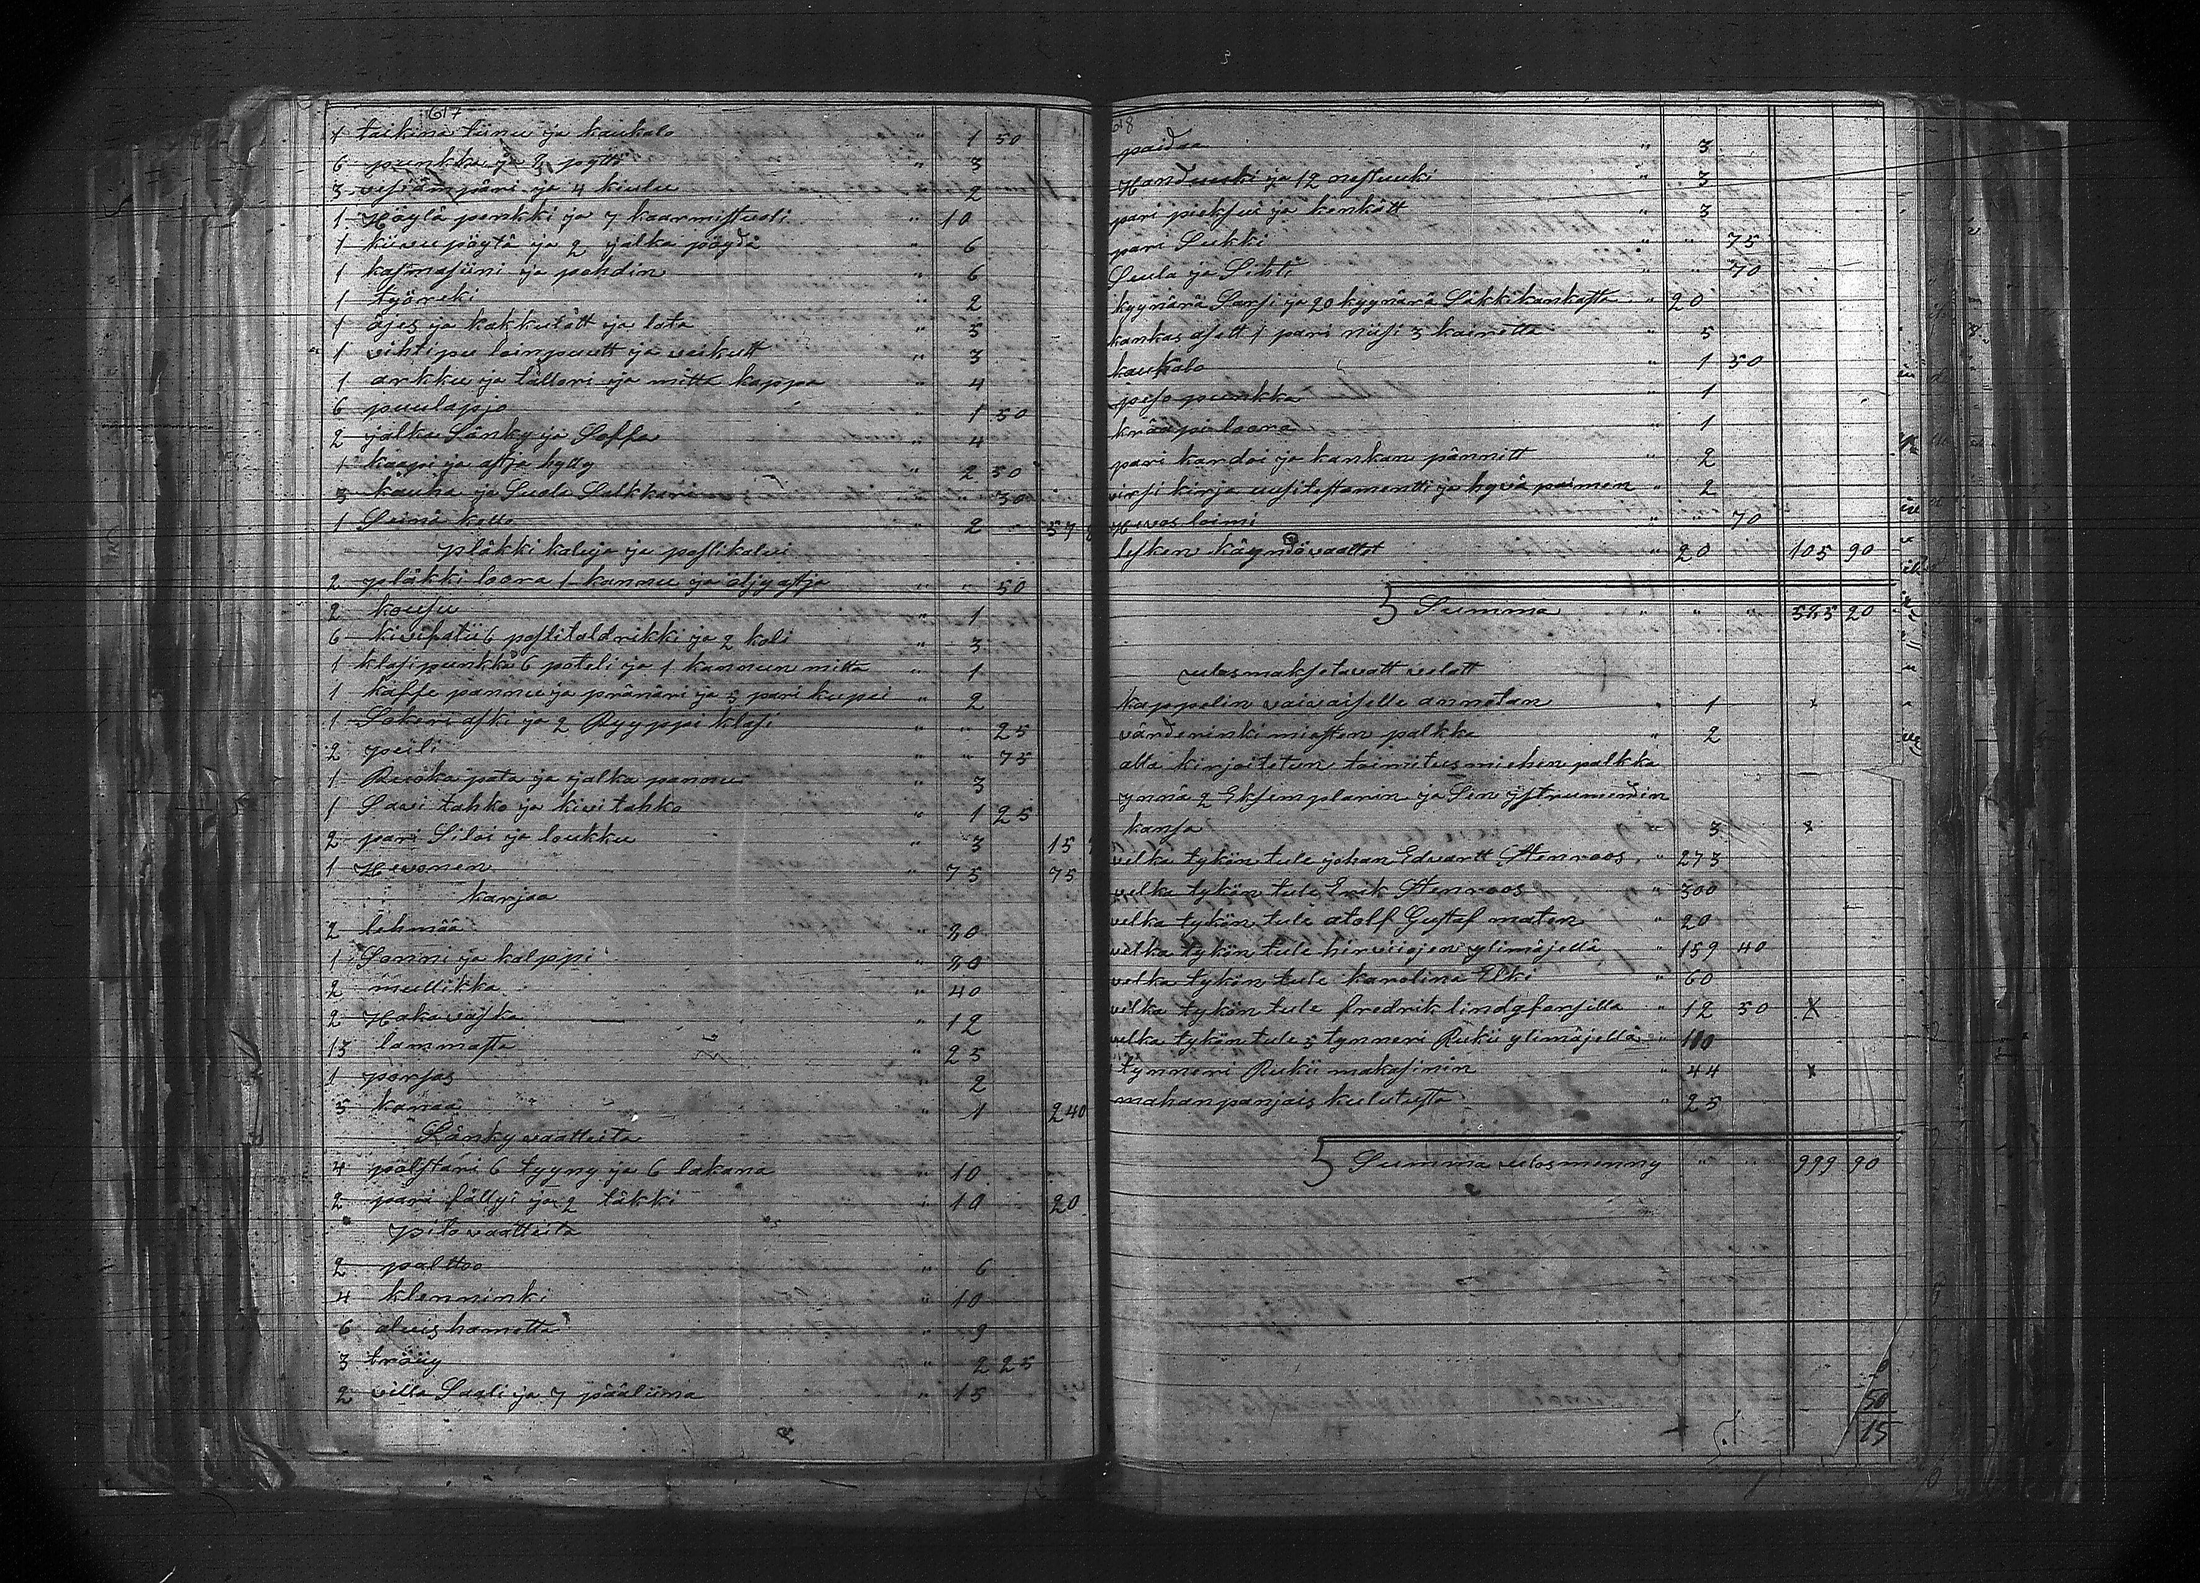 617
1 taikina tiinu ja kaukalo " 1 50
6 punkka ja 2 pytty " 3
3 vesiämpäri ja 4 kiulu " 2
1 Höylä penkki ja 7 kaarmistuoli " 10
1 kiivupöytä ja 2 jalka pöydä " 6
1 kasmasiini ja pohdin " 6
1 työreki " 2
1 äjes ja kakkulatt ja lata " 5
1 vihtipu loinpuutt ja veikutt " 3
1 arkku ja tälleri ja mitta kappa " 4
6 puulapjo 1 50
2 jalka Sänky ja Soffa " 4
1 kaapi ja astja hylly " 2 50
3 kauha ja Suola Salkkari 30
1 Seinä kello " 2 " 57
pläkki kaluja ja postikalui
2 pläkki loora 1 kannu ja öljyastja " " 50
2 kousu " 1
6 kivifatii 6 postitaldrikki ja 2 koli " 3
1 klasipunkka 6 poteli ja 1 kannun mitta " 1
1 kaffe pannu ja pränäri ja 5 pari kupai " 2
1 Sokeri aski ja 2 Ryyppi klasi " " 25
2 peili " " 75
1 Ruoka pata ja jalka pannu " 3
1 Savi tahko ja kivitahko " 1 25
2 pari Siloi ja loukku " 3 15
1 Hevonen " 75 75
karjaa
2 lehmää " 80
1 Sonni ja kolppi " 80
2 mullikka " 40
2 Hakavaska " 12
13 lammasta " 25
1 porsas 2
5 kanaa " 1 240
Sänkyvaatteita
4 pölstäri 6 tyyny ja 6 lakana " 10
2 pari fällyi ja 2 täkki " 10 20
pitovaatteita
2 palttoo " 6
4 klenninki " 10
6 alushametta " 9
3 tröiiy " 2 25
2 villa Saali ja 7 pääliina " 15
618
paidaa " 3
Handuuki ja 12 nestuuki " 3
pari pieksui ja kenkätt " 3
pari Sukki " " 75
Seula ja Sihti " " 70
kyynärä Sarsi ja 20 kyynärä Säkkikankasta " 20
kankas asett 1 pari niisi 3 kairetta " 5
kaukalo " 1 50
peso punkka " 1
krääpi loora " 1
pari kardoi ja kankan pännitt " 2
virsi kirja uusitestamentti ja hyvä paimen " 2
Hevos loimi " " 70
lesken käyndövaattet " 20 105 90
S Summa " " " 585 20
ulosmaksetavatt velatt
kappelin vaivaiselle annetan " 1 x
värderinki miesten palkka " 2
alla kirjoitetun toimitusmiehen palkka
ynnä 2 Eksemplarin ja Sen ystrumendin
kansa " 3 x
velka tykön tule johan Edvartt Stenroos " 273
velka tykön tule Erik Stenroos " 300
velka tykön tule atolf Gustaf maten " 20
velka tykön tule hirviiojen ylimäjellä " 159 40
velka tykön tule karolina Elki " 60
velka tykön tule fredrik lindgforsilla " 12 50 X
velka tykön tule 5 tynneri Rukii ylimäjellä " 100
tynneri Rukii makasinin " 44 x
mahanpanjais kulutusta " 25
S Summa ulosmenny " " 999 90
50
15